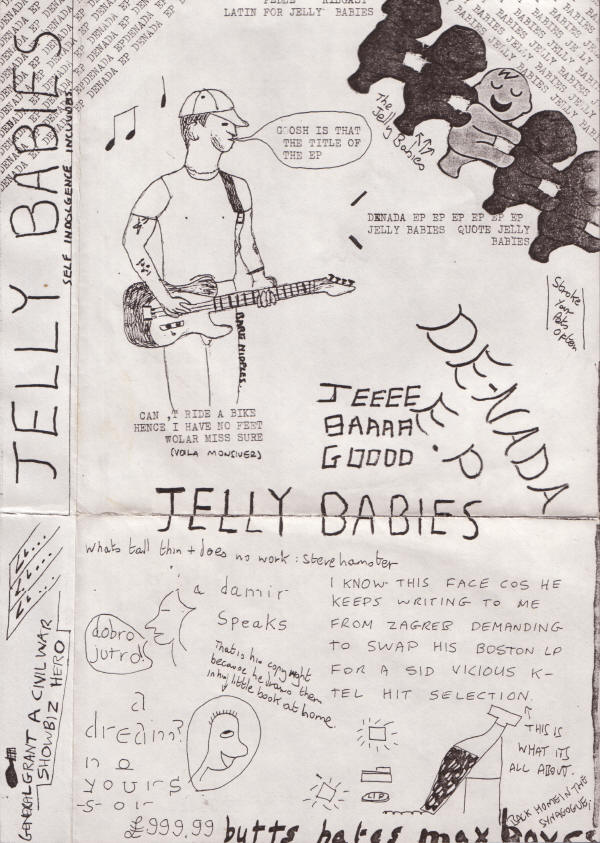 LATIN FOR JELLY BABIES
DENADA EP DENADA EP DENADA EP
JELLY BABIES JELLY BABIES JELLY BABIES
JELLY BABIES
SELF INDOLGENCE INCLUDES
The
Jelly Babies
GOOSH IS THAT
THE TITLE OF
THE EP
DENADA EP EP EP EP EP EP
JELLY BABIES QUOTE JELLY
BABIES
Stroke
Your
Pets
Often
BARE NIPPLES...
CAN ,T RIDE A BIKE
HENCE I HAVE NO FEET
WOLAR MISS SURE
(VOILA MONSIUER)
JEEEE
BAAAA
GOODD
DE-NADA
E.P
JELLY BABIES
whats tall thin + does no work : steve hamster
a damir
speaks
dobro
jutro!
That is his copyright
because he draws them
in his little book at home.
I KNOW THIS FACE COS HE
KEEPS WRITING TO ME
FROM ZAGREB DEMANDING
TO SWAP HIS BOSTON LP
FOR A SID VICIOUS K-
TEL HIT SELECTION.
THIS IS
WHAT ITS
ALL ABOUT.
BACK HOME IN THE
SYNAGOGUE!
a
dream?
yours
GENERAL GRANT A CIVIL WAR
SHOWBIZ HERO
£999.99
butts hates max boyce